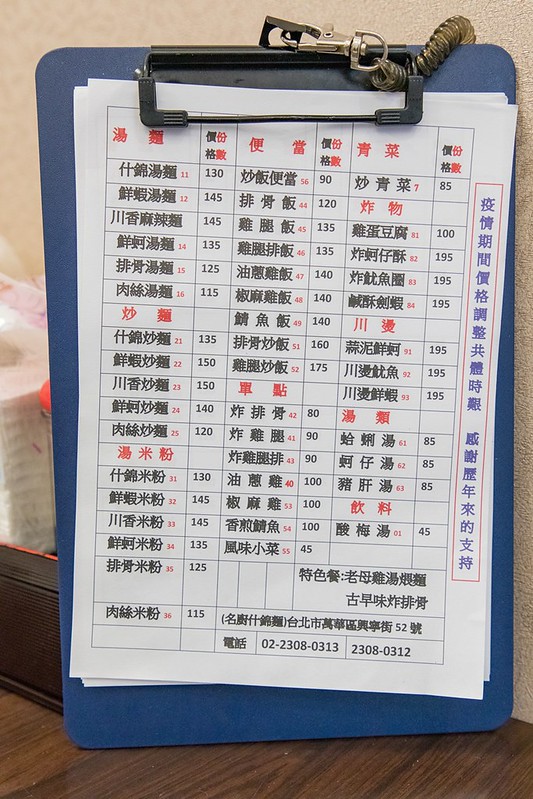 湯 麵 價格 份數
什錦湯麵 11 130
鮮蝦湯麵 12 145
川香麻辣麵 145
鮮蚵湯麵 14 135
排骨湯麵 15 125
肉絲湯麵 16 115
炒 麵
什錦炒麵 21 135
鮮蝦炒麵 22 150
川香炒麵 23 150
鮮蚵炒麵 24 140
肉絲炒麵 25 120
湯 米 粉
什錦米粉 31 130
鮮蝦米粉 32 145
川香米粉 33 145
鮮蚵米粉 34 135
排骨米粉 35 125
肉絲米粉 36 115
便 當 價格 份數
炒飯便當 56 90
排 骨 飯 44 120
雞 腿 飯 45 135
雞腿排飯 46 135
油蔥雞飯 47 140
椒麻雞飯 48 140
鯖 魚 飯 49 140
排骨炒飯 51 160
雞腿炒飯 52 175
單 點
炸 排 骨 42 80
炸 雞 腿 41 90
炸雞腿排 43 90
油 蔥 雞 40 100
椒 麻 雞 53 100
香煎鯖魚 54 100
風味小菜 55 45
青 菜 價格 份數
炒 青 菜 7 85
炸 物
雞蛋豆腐 81 100
炸蚵仔酥 82 195
炸魷魚圈 83 195
鹹酥劍蝦 84 195
川 燙
蒜泥鮮蚵 91 195
川燙魷魚 92 195
川燙鮮蝦 93 195
湯 類
蛤 蜊 湯 61 85
蚵 仔 湯 62 85
豬 肝 湯 63 85
飲 料
酸 梅 湯 01 45
特色餐:老母雞湯煨麵
古早味炸排骨
(名廚什錦麵)台北市萬華區興寧街 52 號
電話 02-2308-0313 2308-0312
疫情期間價格調整共體時艱 感謝歷年來的支持